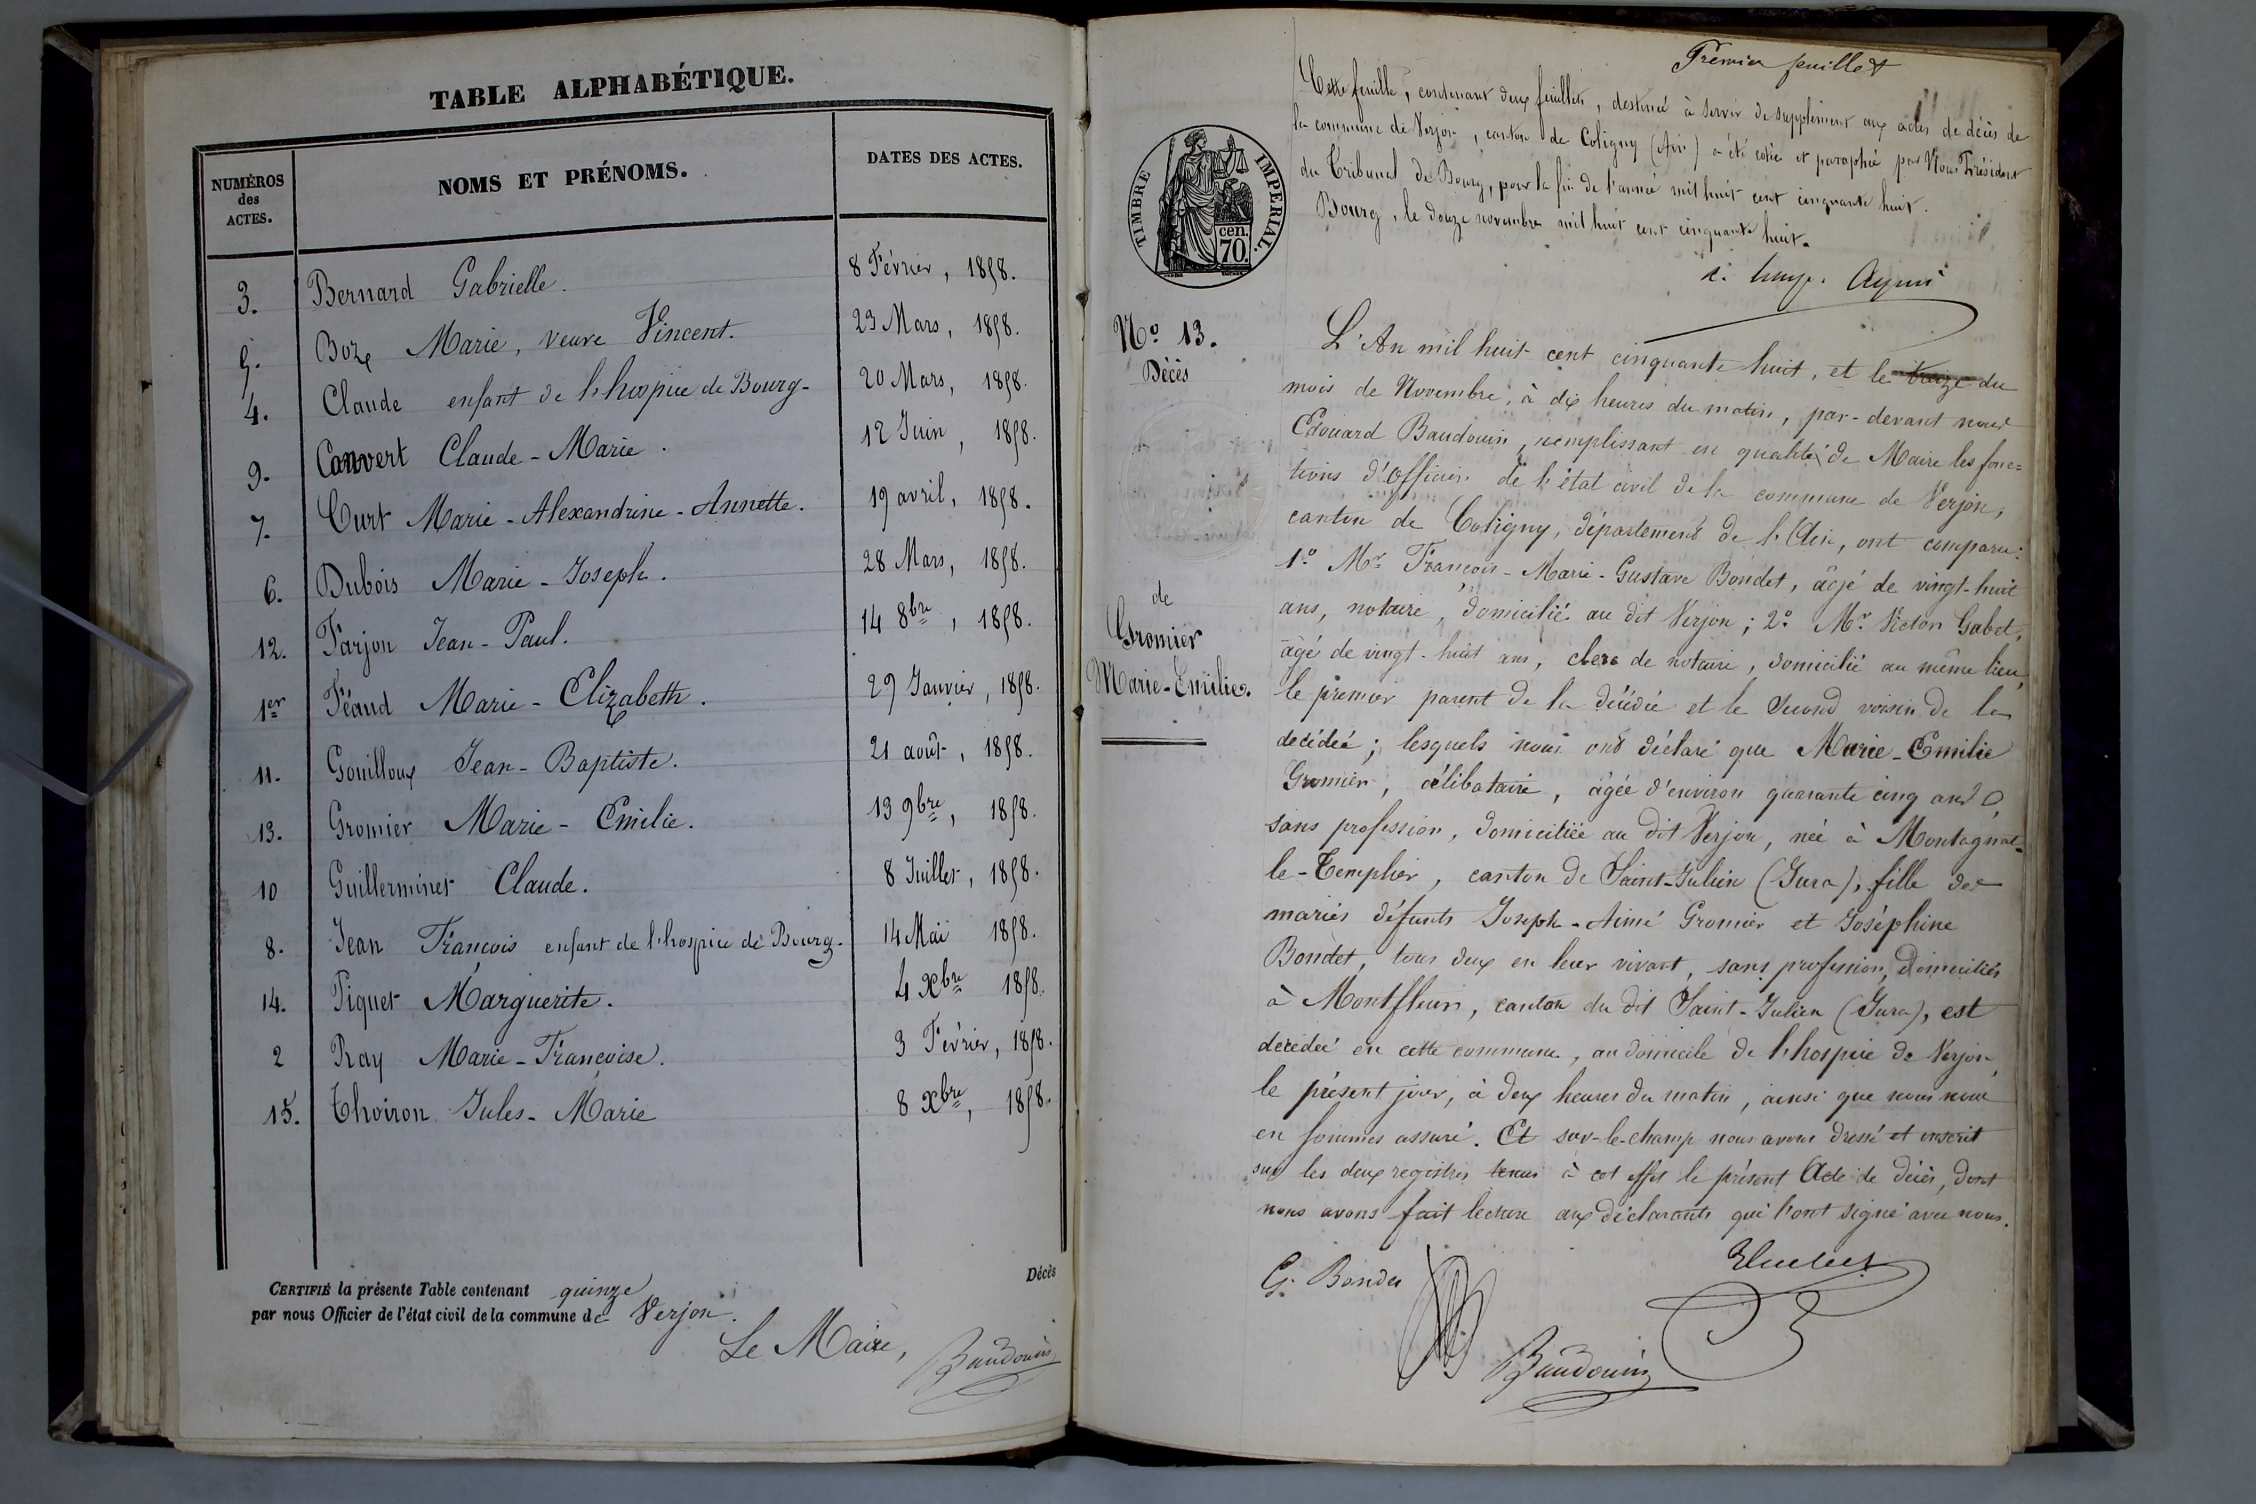 TABLE ALPHABÉTIQUE.
NUMÉROS des ACTES.
NOMS ET PRÉNOMS.
DATES DES ACTES.
3. Bernard Gabrielle. 8 Février, 1858.
5. Boze Marie, veuve Vincent. 23 Mars, 1858.
4. Claude enfant de l'hospice de Bourg- 20 Mars, 1858.
9. Convert Claude-Marie. 12 Juin, 1858.
7. Curt Marie-Alexandrine-Annette. 19 avril, 1858.
6. Dubois Marie-Joseph. 28 Mars, 1858.
12. Farjon Jean-Paul. 14 8bre, 1858.
1er Féaud Marie-Elizabeth. 29 Janvier, 1858.
11. Gouilloux Jean-Baptiste. 21 août, 1858.
13. Gromier Marie-Emilie. 13 9bre, 1858.
10 Guillerminet Claude. 8 Juillet, 1858.
8. Jean François enfant de l'hospice de Bourg- 14 Mai 1858.
14. Piquet Marguerite. 4 Xbre 1858.
2 Ray Marie-Françoise. 3 Février, 1858.
15. Thoiron Jules-Marie 8 Xbre, 1858.
CERTIFIÉ la présente Table contenant quinze Décès
par nous Officier de l'état civil de la commune de Verjon.
Le Maire,
Baudouin
Premier feuillet
Cette feuille, contenant deux feuillets, destinée à servir de supplément aux actes de décès de
la commune de Verjon, canton de Coligny (Ain) a été cotée et paraphée par Nous Président
du Tribunal de Bourg, pour la fin de l'année mil huit cent cinquante huit.
Bourg, le douze novembre mil huit cent cinquante huit.
TIMBRE IMPERIAL.
70 cen.
No. 13.
Décès
de
Gromier
Marie-Emilie.
L'An mil huit cent cinquante huit, et le treize du
mois de Novembre, à dix heures du matin, par-devant nous
Edouard Baudouin, remplissant en qualité de Maire les fonc=
tions d'Officier de l'état civil de la commune de Verjon,
canton de Coligny, département de l'Ain, ont comparu:
1o. Mr. François-Marie-Gustave Bondet, âgé de vingt-huit
ans, notaire, domicilié au dit Verjon; 2o. Mr. Victor Gabet,
âgé de vingt-huit ans, clerc de notaire, domicilié au même lieu,
le premier parent de la décédée et le second voisin de la
décédée; lesquels nous ont déclaré que Marie-Emilie
Gromier, célibataire, âgée d'environ quarante cinq ans
sans profession, domiciliée au dit Verjon, née à Montagnat-
le-Templier, canton de Saint-Julien (Jura), fille des
mariés défunts Joseph-Aimé Gromier et Joséphine
Bondet, tous deux en leur vivant, sans profession, domiciliés
à Montfleur, canton du dit Saint-Julien (Jura), est
décédée en cette commune, au domicile de l'hospice de Verjon,
le présent jour, à deux heures du matin, ainsi que nous nous
en sommes assuré. Et sur-le-champ nous avons dressé et inscrit
sur les deux registres tenus à cet effet le présent Acte de décès, dont
nous avons fait lecture aux déclarants qui l'ont signé avec nous.
G. Bondet
Baudouin